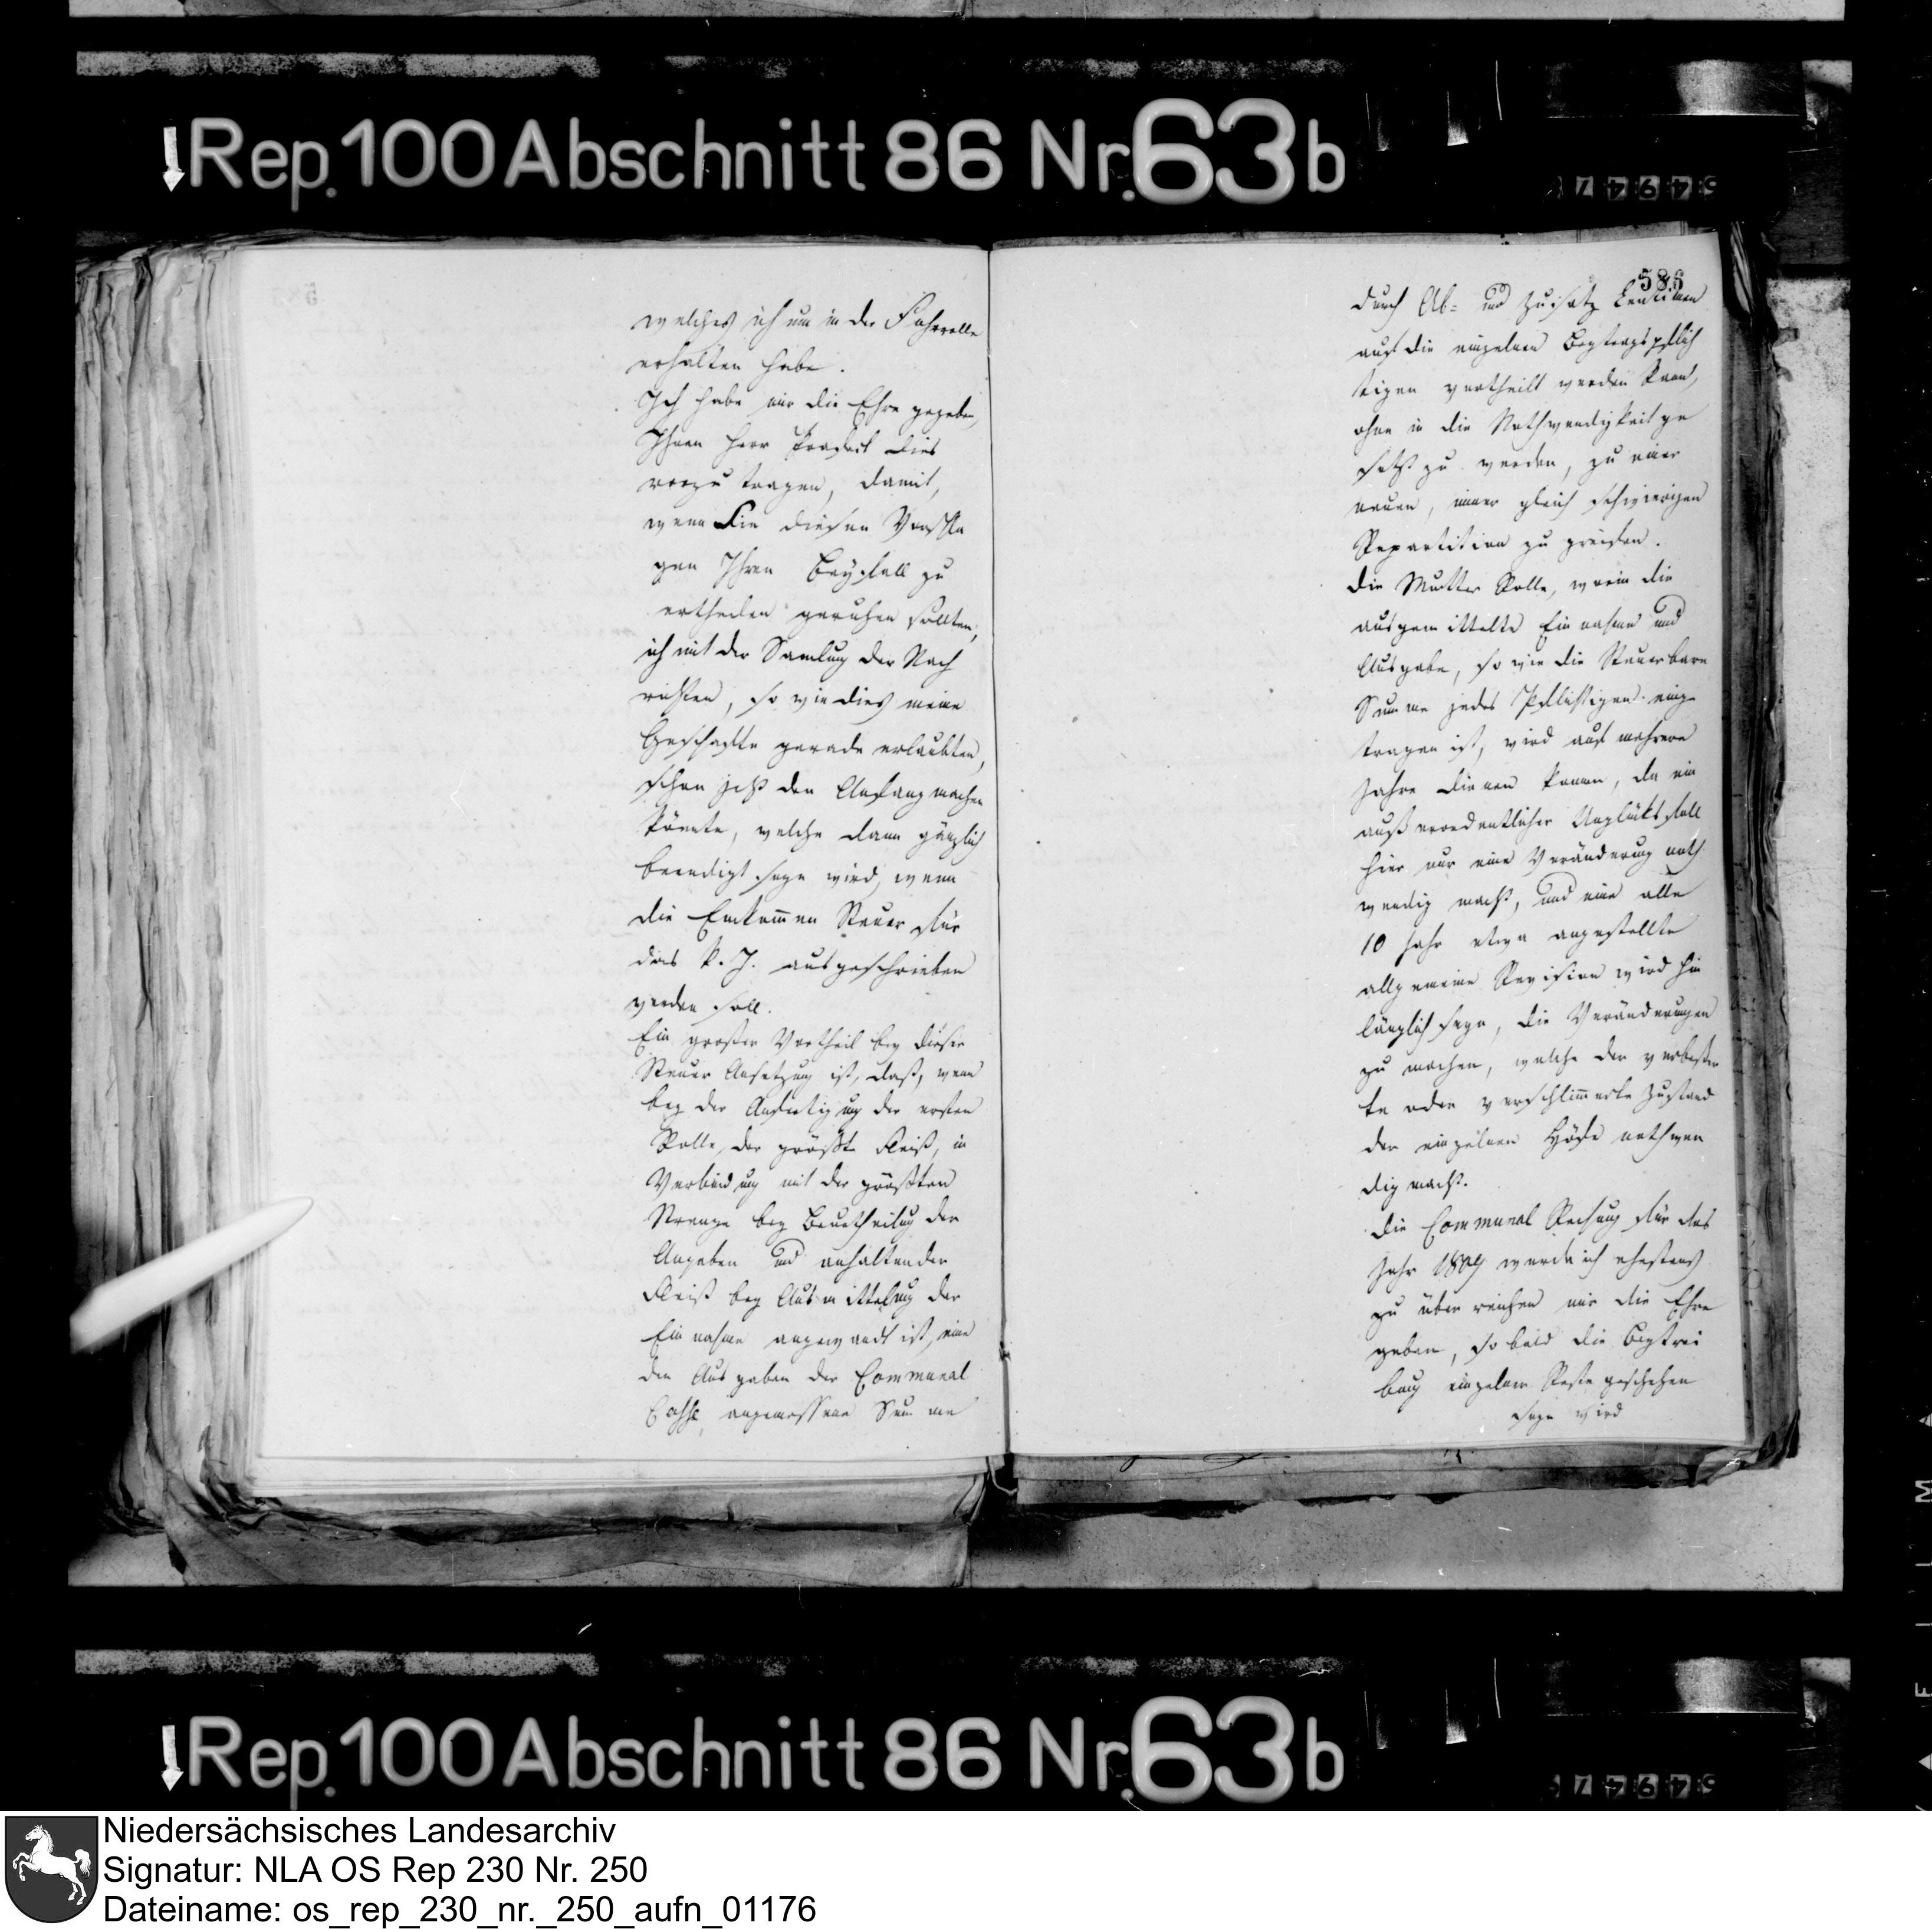 Rep. 100 Abschnitt 86 Nr. 63b
welches ich nun in der
erhalten habe.
Ich habe mir die Ehre gegeben,
Ihnen Herr Praefect dies
vorzutragen, damit,
wenn Sie diesen Vorschlä
gen Ihren Beyfall zu
ertheilen geruhen sollten,
ich mit der Samlung der Nach
richten, so wie dies meine
Geschäfte gerade erlaubten,
schon jetzt den Anfang machen
könnte, welche dann gänzlich
beendigt seyn wird, wenn
die Einkommen Steuer für
das k. J. ausgeschrieben
werden soll.
Ein großer Vortheil bey dieser
Steuer Ansetzung ist, daß, wenn
bey der Anfertigung der ersten
Rolle, der größte Fleiß, in
Verbindung mit der größten
Strenge bey Beurtheilung der
Angaben und anhaltender
Fleiß bey Ausmittelung der
Einnahme angewandt ist, eine
den Ausgaben der Communal
Casse, angemessene Summe
586
durch Ab- und Zusatz Centimen
auf die einzelnen Beytragspflich
tigen vertheilt werden kann,
ohne in die Nothwendigkeit ge
setzt zu werden, zu einer
neuen, immer gleich schwierigen
Repartition zu greifen.
Die Mutter Rolle, worin die
ausgemittelte Einnahme und
Ausgabe, so wie die Steuerbare
Summe jedes Pflichtigen einge
tragen ist, wird auf mehrere
Jahre dienen können, da ein
außerordentlicher Unglücksfall
hier nur eine Veränderung noth
wendig macht, und eine alle
10 Jahr etwa angestellte
allgemeine Revision wird hin
länglich seyn, die Veränderungen
zu machen, welche der verbesser
te oder verschlimmerte Zustand
der einzelnen Höfe nothwen
dig macht.
Die Communal Rechnung für das
Jahr 1809 werde ich ehestens
zu überreichen mir die Ehre
geben, so bald die Beytrei
bung einzelner Reste geschehen
seyn wird
Rep. 100 Abschnitt 86 Nr. 63b
Niedersächsisches Landesarchiv
Signatur: NLA OS Rep 230 Nr. 250
Dateiname: os_rep_230_nr._250_aufn_01176